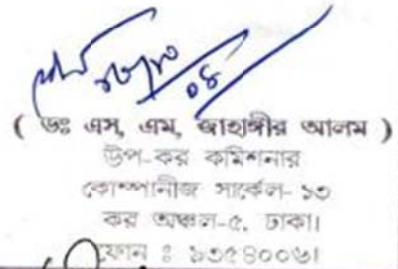 ( ডঃ এস, এম, জাহাঙ্গীর আলম )
উপ-কর কমিশনার
কোম্পানীজ সার্কেল- ১৩
কর অঞ্চল-৫, ঢাকা।
ফোন ঃ ৯৩৫৪০০৬।